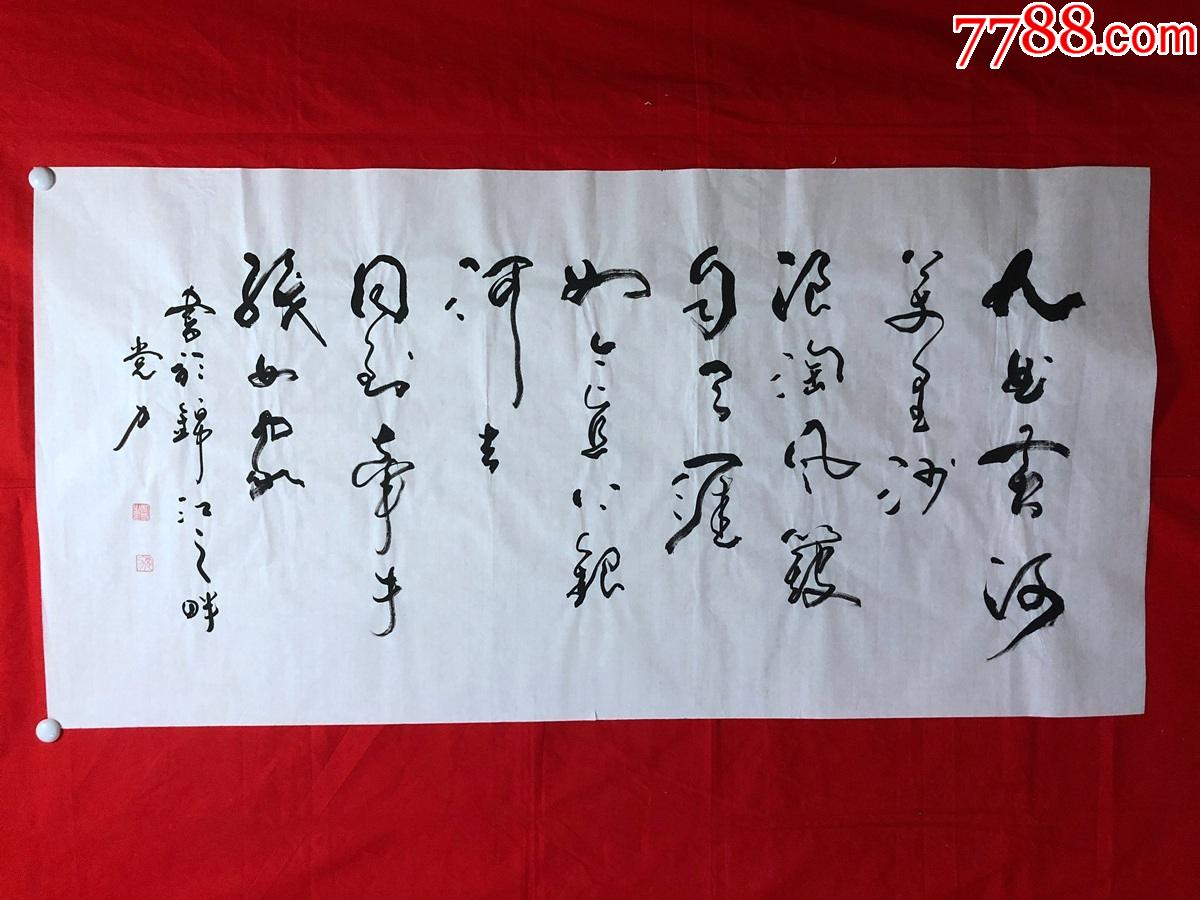 7788.com
九曲黄河
萬里沙
浪淘风簸
自天涯
如今直上銀
河去
同到牽牛
織女家
書於錦江之畔
党力